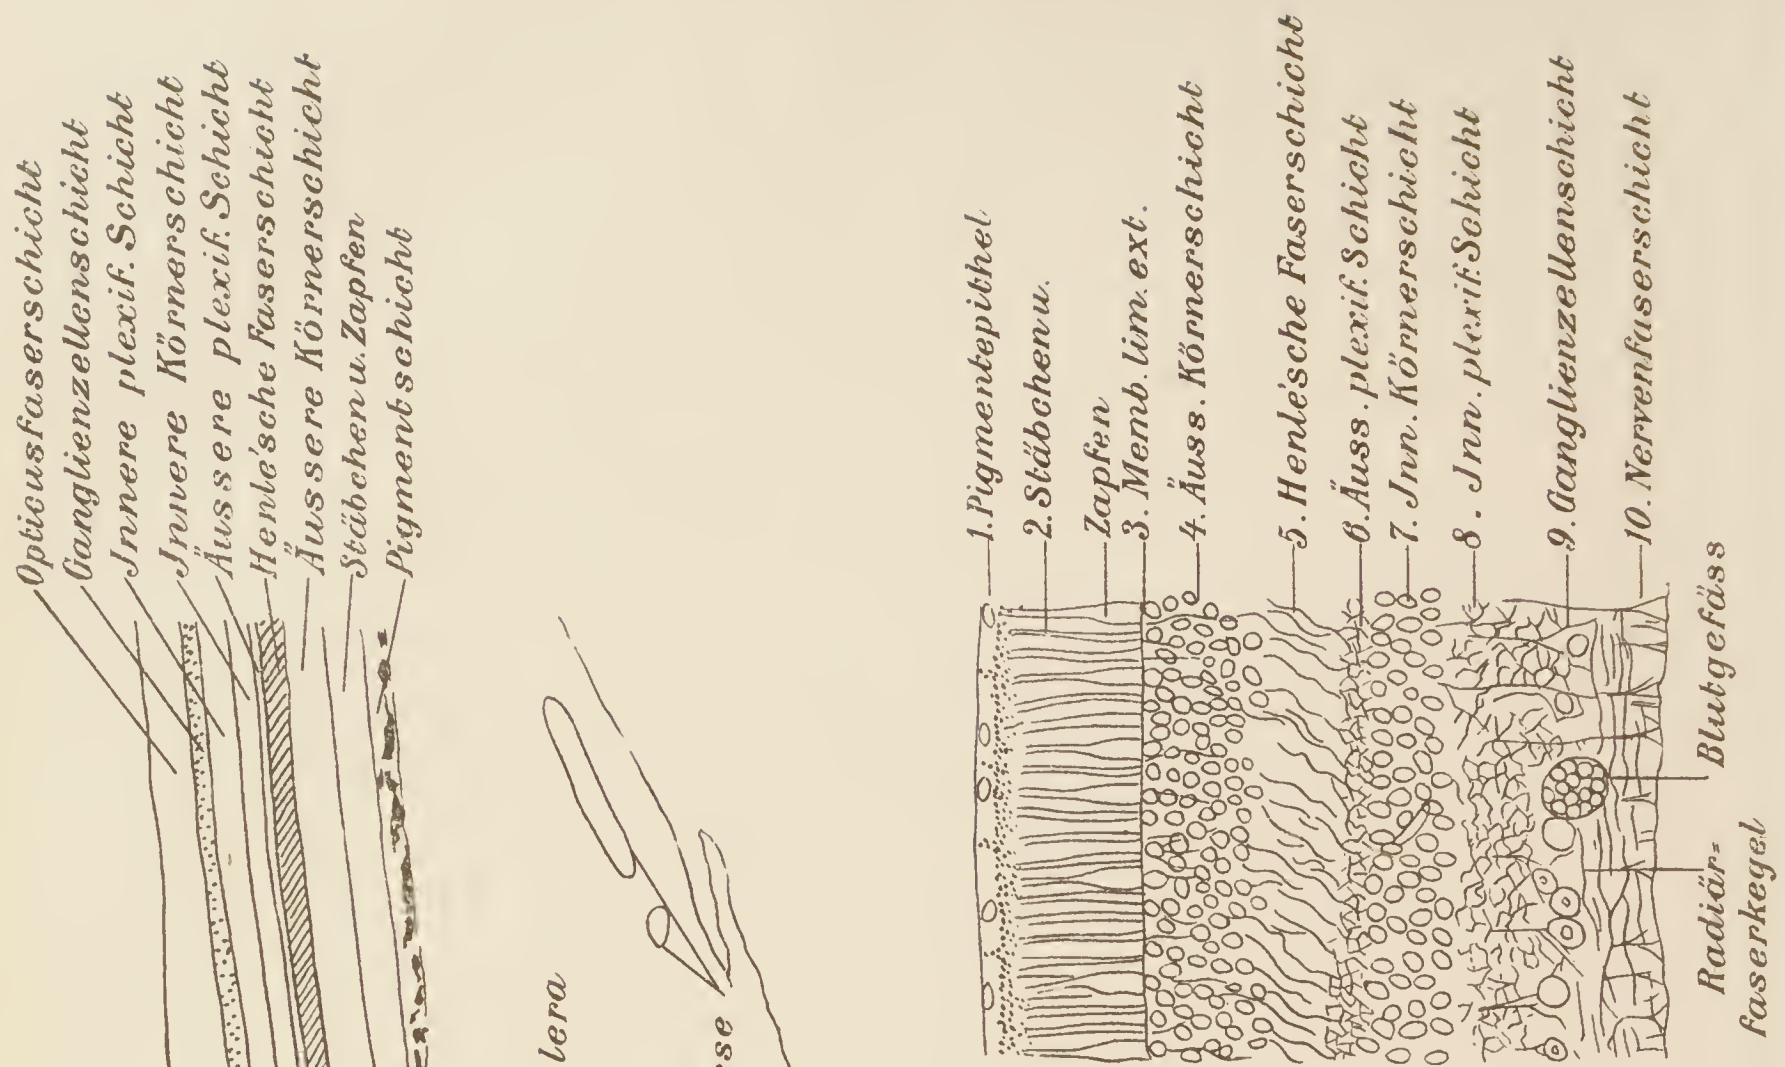 Opticusfaserschicht
Ganglienzellenschicht
Jnnere plexif. Schicht
Jnnere Körnerschicht
Äussere plexif. Schicht
Henle'sche Faserschicht
Äussere Körnerschicht
Stäbchen u. Zapfen
Pigmentschicht
lera
se
1. Pigmentepithel
2. Stäbchen u.
Zapfen
3. Memb. lim. ext.
4. Äuss. Körnerschicht
5. Henle'sche Faserschicht
6. Äuss. plexif. Schicht
7. Jnn. Körnerschicht
8. Jnn. plexif. Schicht
9. Ganglienzellenschicht
10. Nervenfaserschicht
Blutgefäss
Radiär=
faserkegel